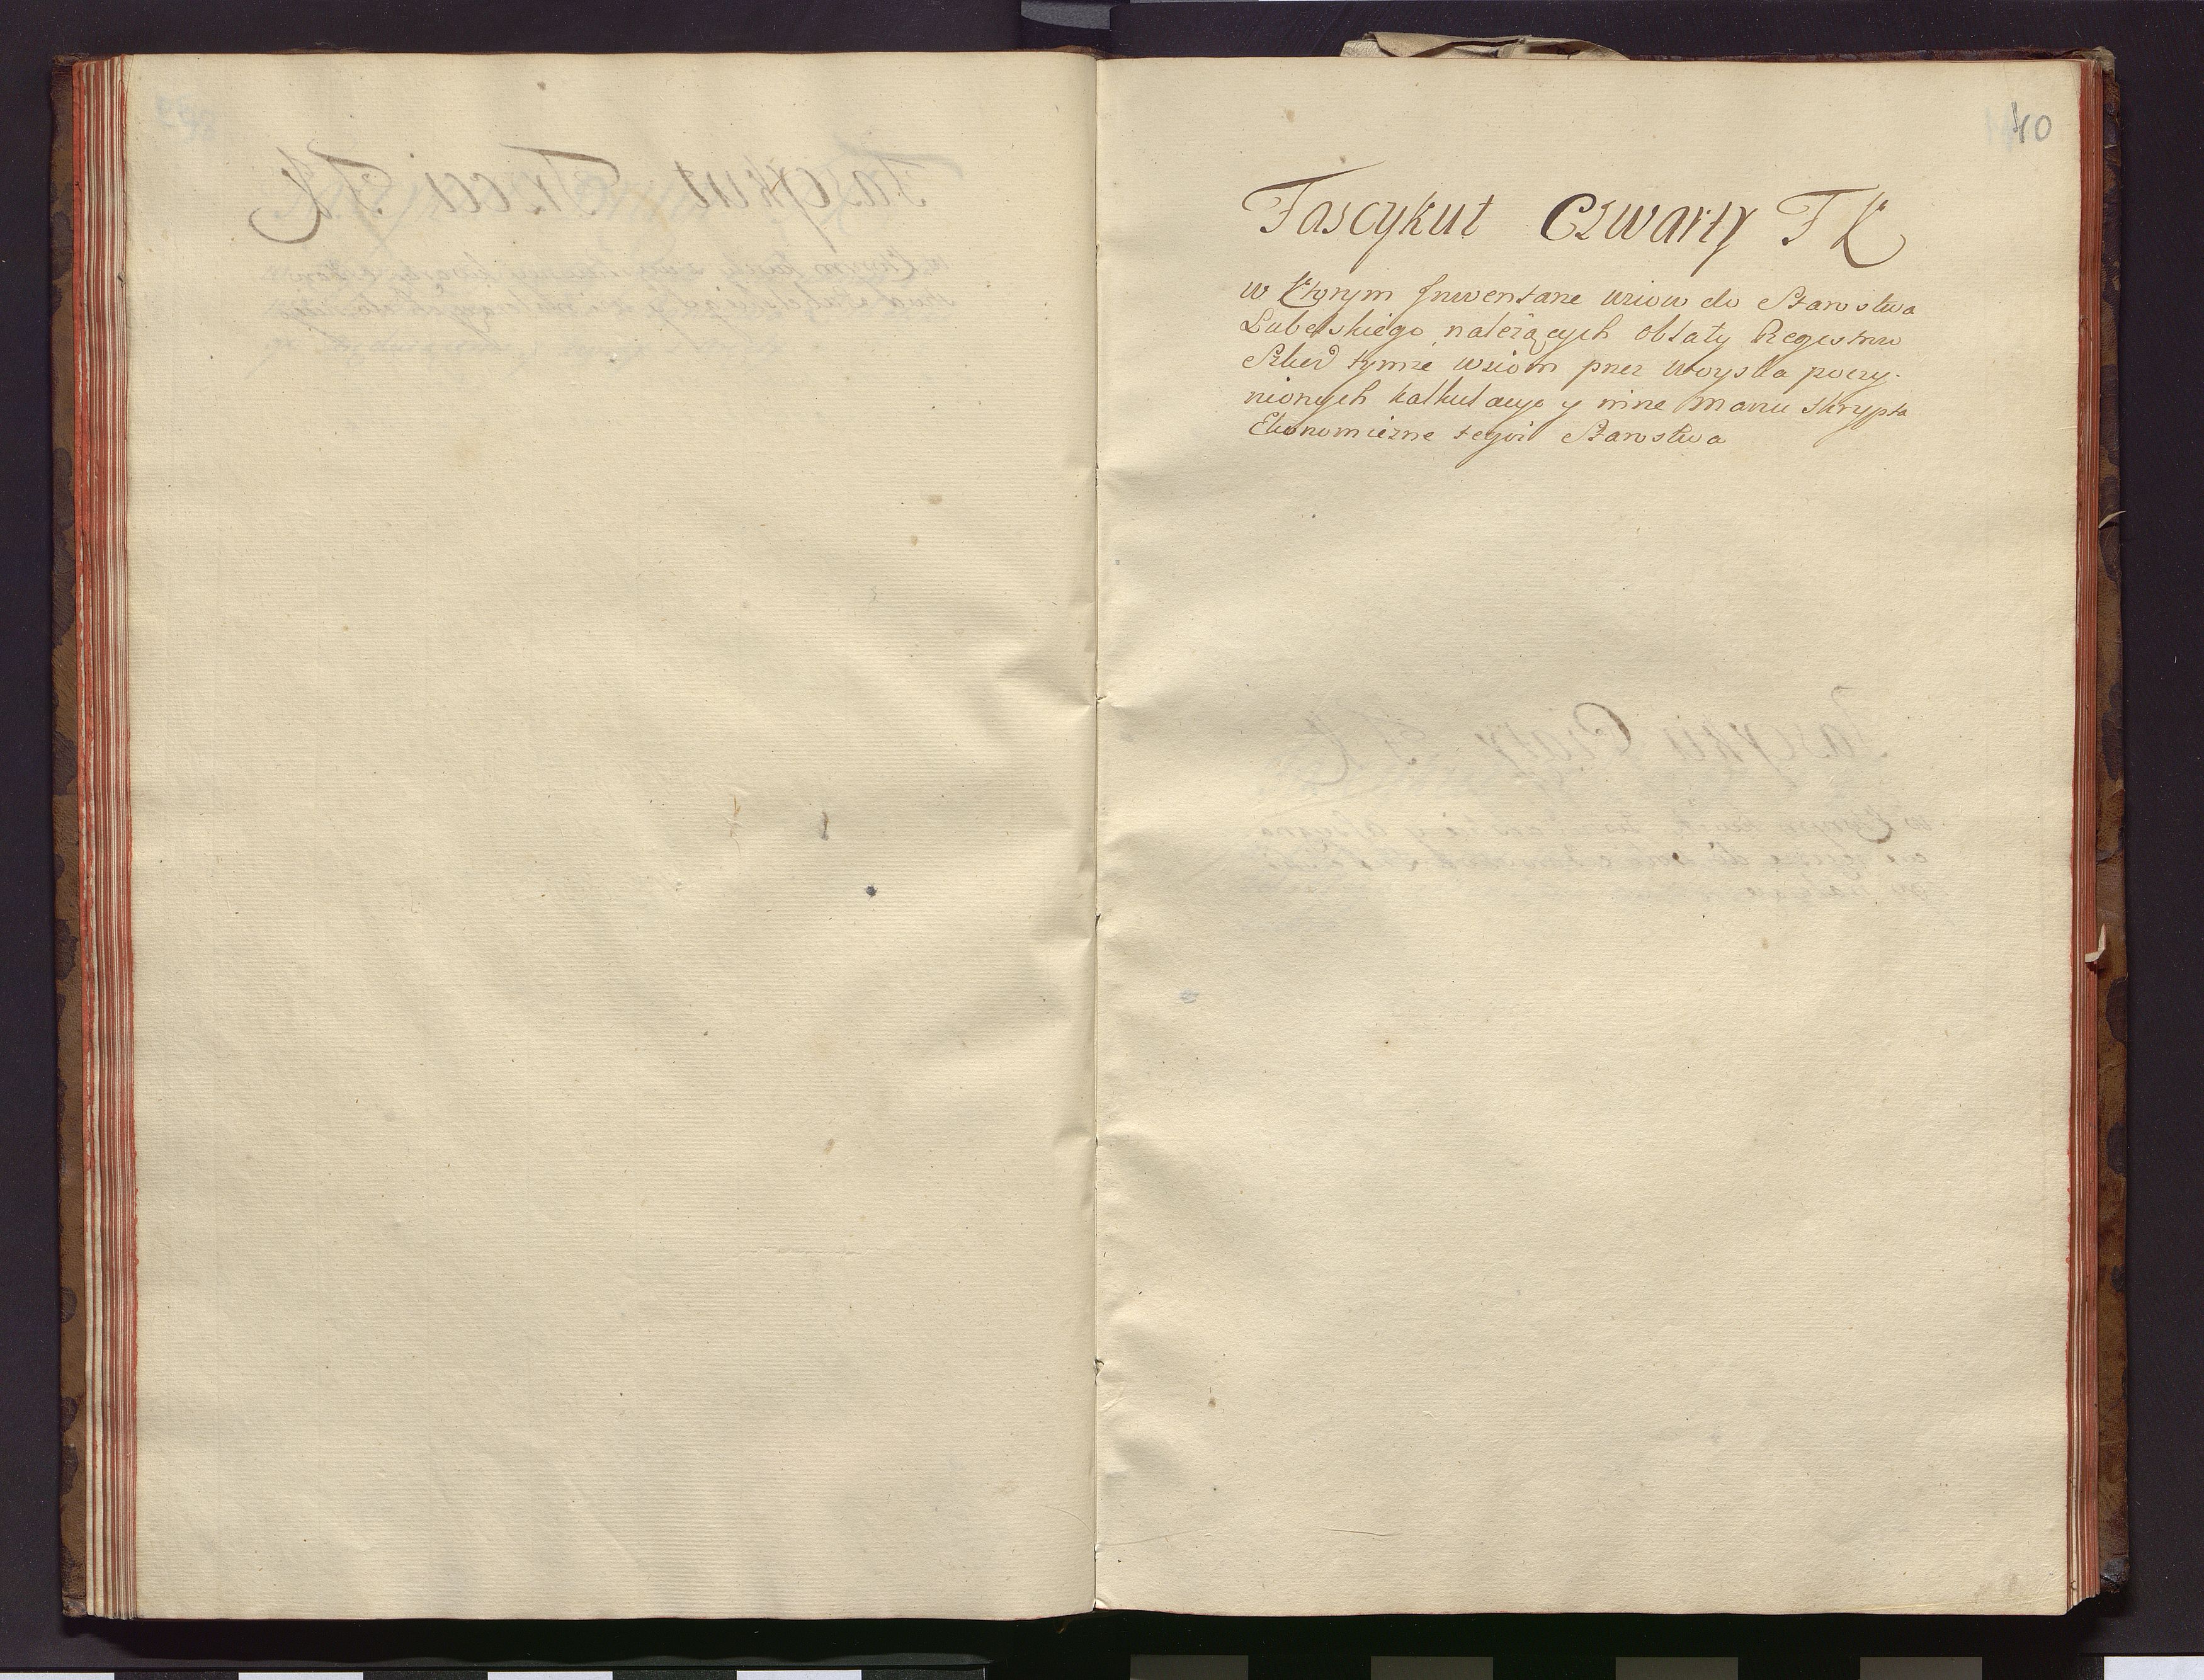 40
Fascykuł Czwarty F K
w Ktorym Inwentarze wsiow do Starostwa
Lubelskiego należących oblaty Regestrow
Szkod tymże wsiom przez woyska poczy-
nionych kalkulacye y inne Manu skrypta
Ekonomiczne tegoż Starostwa